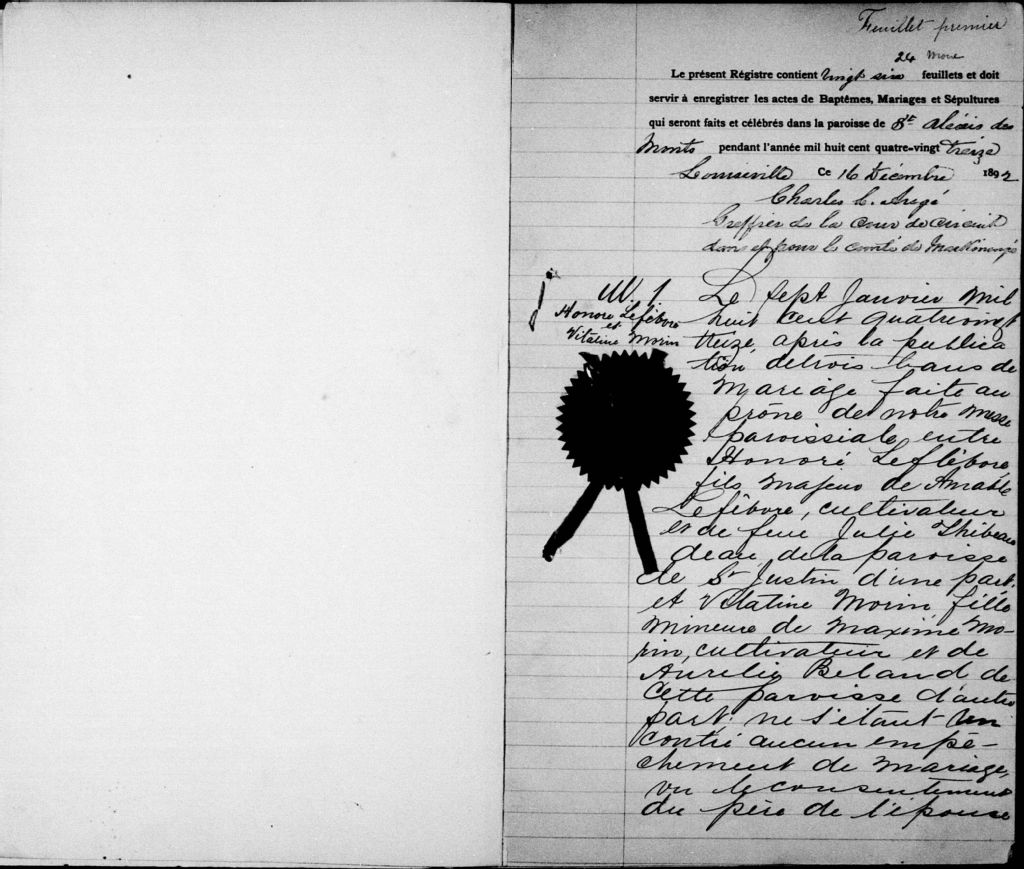 Feuillet premier
24
Le présent Régistre contient vingt six feuillets et doit
servir à enregistrer les actes de Baptêmes, Mariages et Sépultures
qui seront faits et célébrés dans la paroisse de St Alexis des
Monts pendant l'année mil huit cent quatre-vingt treize
Louiseville Ce 16 Décembre 1892
Charles L.
Greffier de la cour de circuit
dans et pour le comté de Maskinongé
M. 1
Honoré Lefebvre
et
Vitaline Morin
Le sept Janvier mil
huit cent quatrevingt
treize, après la publica
tion de trois bans de
mariage faite au
prône de notre messe
paroissiale, entre
Honoré Lefebvre,
fils majeur de Amable
Lefebvre, cultivateur
et de feue Julie Thibeau
deau de la paroisse
de St Justin d'une part,
et Vitaline Morin, fille
mineure de Maxime Mo-
rin, cultivateur et de
Aurelie Beland de
cette paroisse d'autre
part; ne s'étant ren
contré aucun empê-
chement de mariage,
vu le consentement
du père de l'épouse